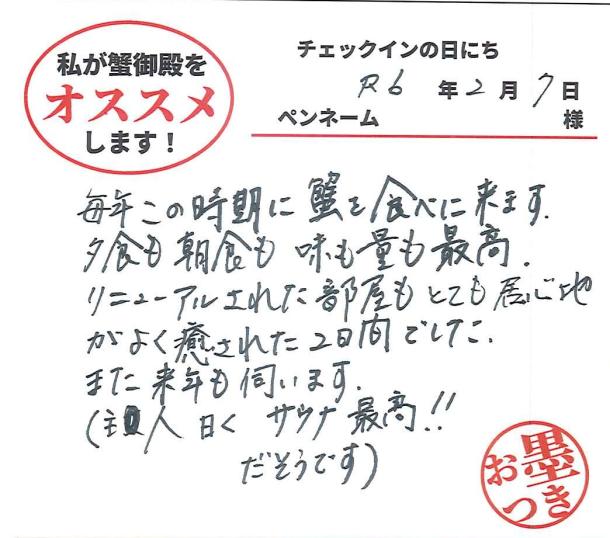 私が蟹御殿を
オススメ
します！
チェックインの日にち
R6年2月7日
ペンネーム 様
毎年この時期に蟹を食べに来ます.
夕食も朝食も味も量も最高.
リニューアルされた部屋もとても居心地
がよく癒された2日間でした.
また来年も伺います.
(主人曰く サウナ最高!!
だそうです)
お墨
つき